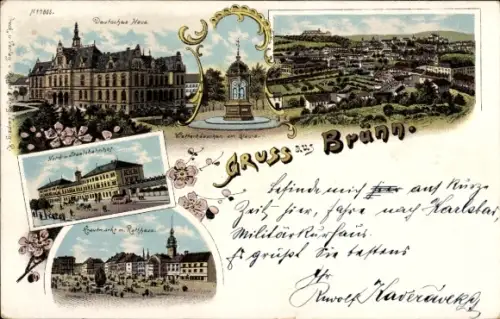 Deutsches Haus.
Wetterhäuschen am Glacis.
Gruss aus Brünn.
Nord- u. Staatsbahnhof.
Krautmarkt m. Rathaus.
Befinde mich hier auf kurze
Zeit hier, fahre nach Karlsbad,
Militärkurhaus.
Es grüßt Sie bestens
Ihr
Rudolf